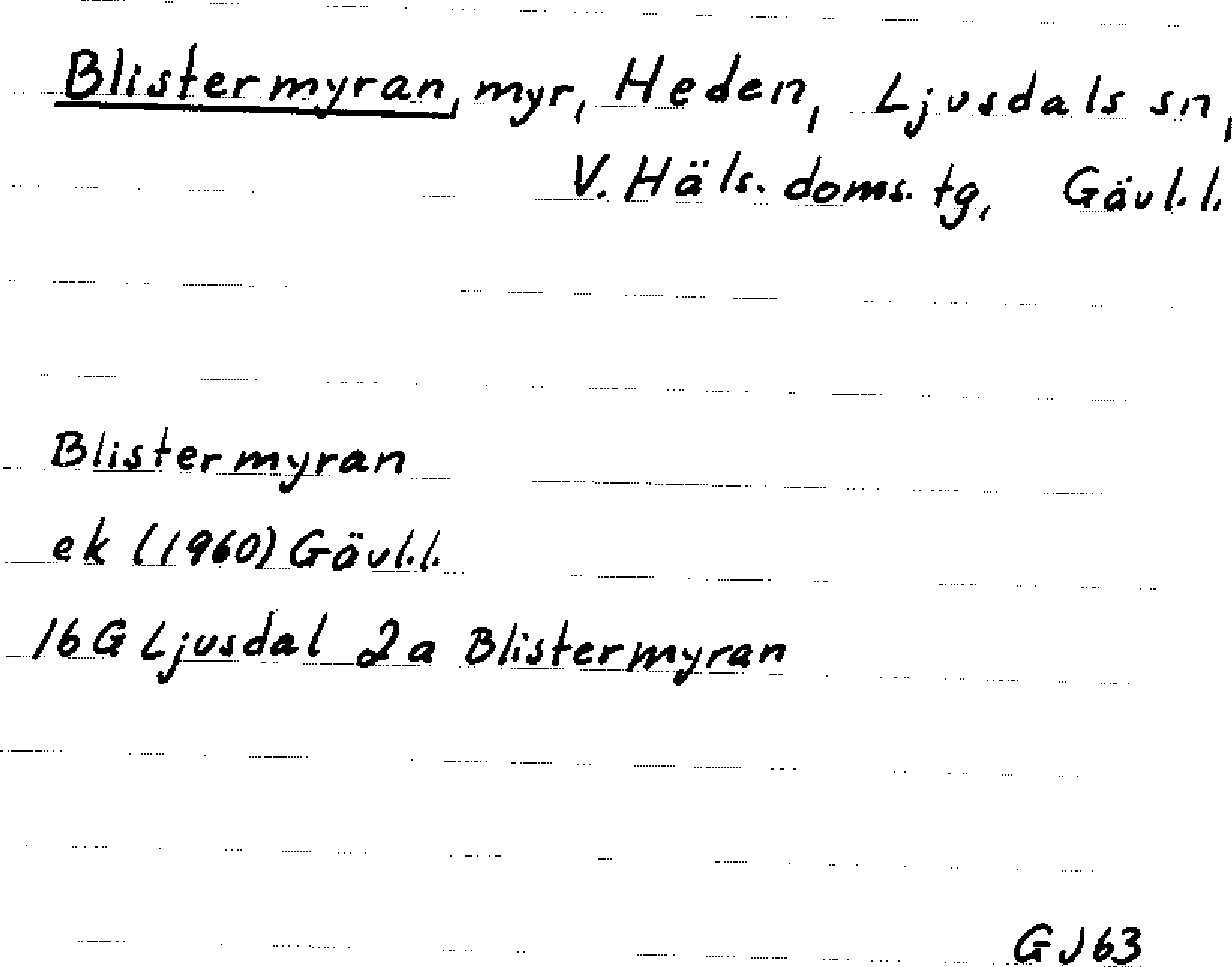 Blistermyran, myr, Heden, Ljusdals sn,
V. Häls. doms. tg, Gävl.l.
Blistermyran
ek (1960) Gävl.l.
16 G Ljusdal 2a Blistermyran
GJ 63